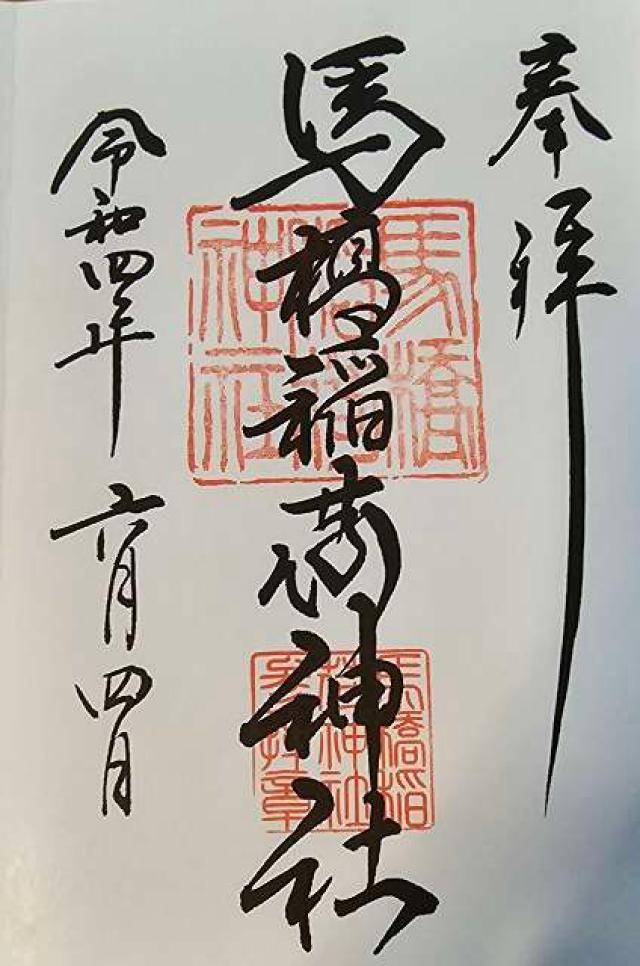 奉拝
馬橋稲荷神社
令和四年六月四日
馬橋稲荷神社
馬橋稲荷神社参拝章